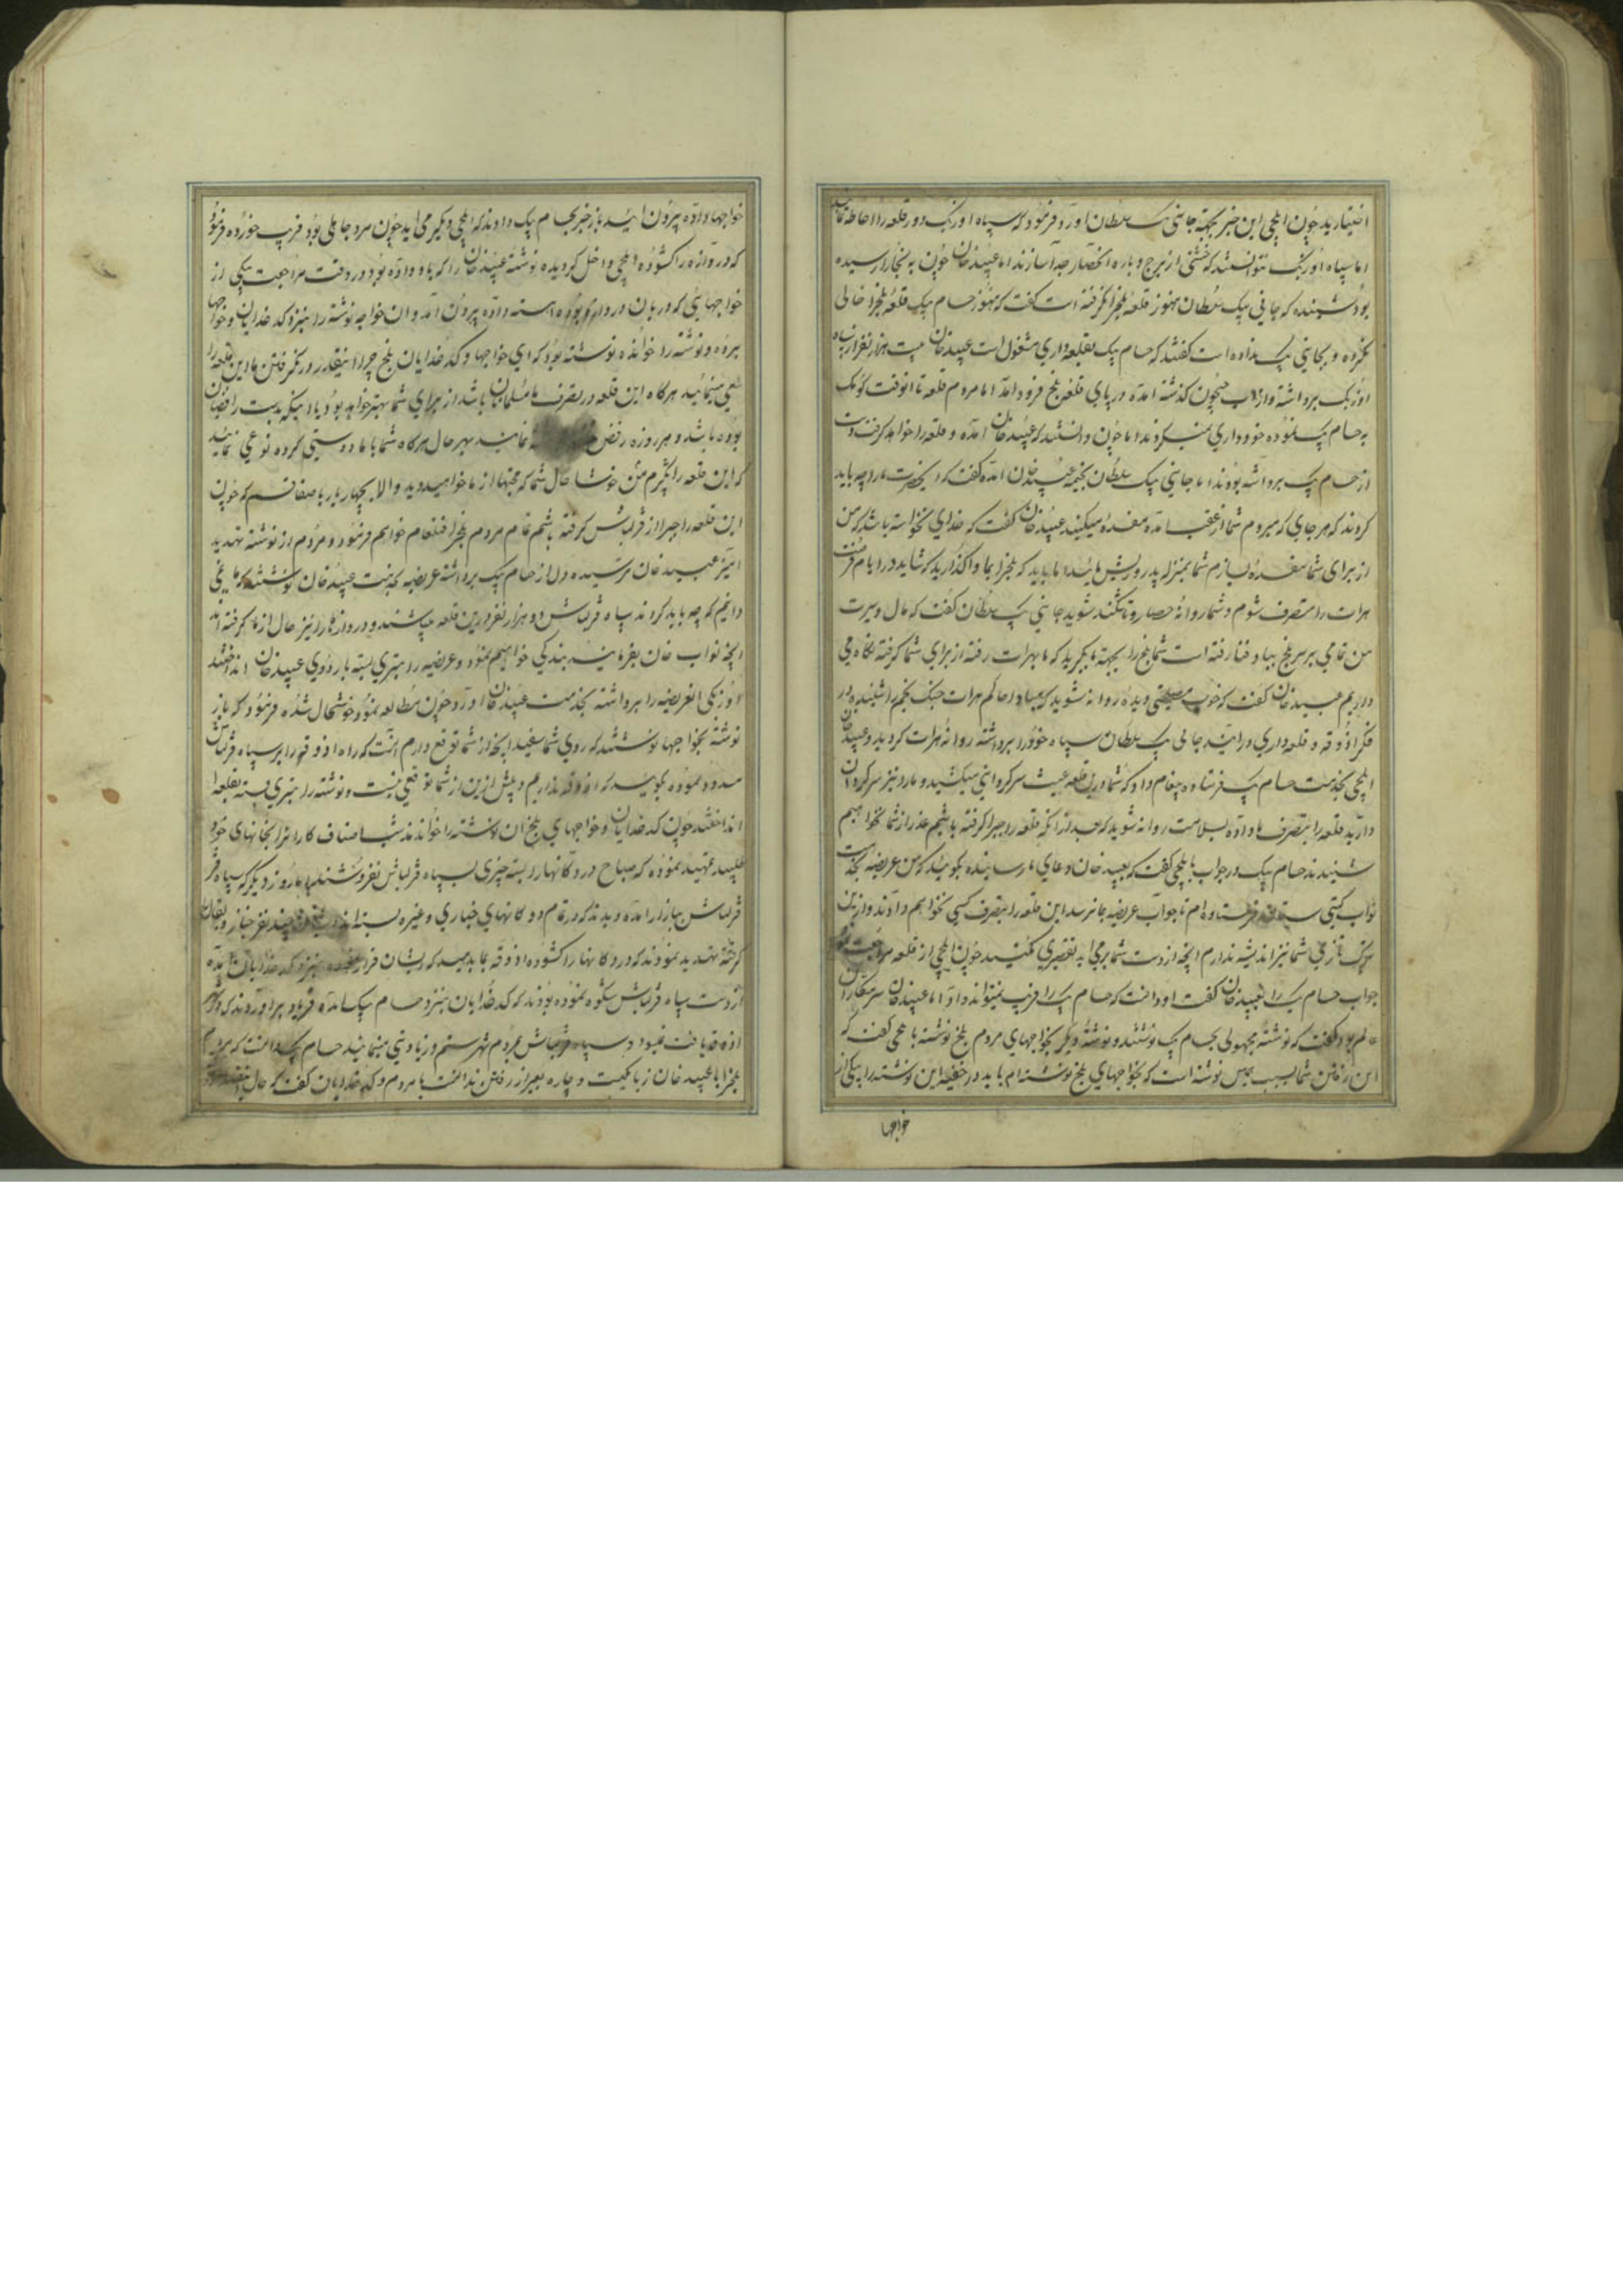 اختیارید چون ایلچی این خبر بجهة جانی بیک سلطان اورد فرمود که سپاه اوزبک دور قلعه را احاطه نمایند
اما سپاه اوزبک نتوانستند که خشتی از برج و باره انحصار جدا سازند اما عبیدخان چون به بخارا رسیده
بود شنیده که جانی بیک سلطان هنوز قلعه بلخ را نگرفته است گفت که هنوز حسام بیک قلعه بلخ را خالی
نکرده و بجانی بیک نداده است گفتند که حسام بیک بقلعه داری مشغول است عبیدخان بیست هزار نفر از سپاه
اوزبک برداشته و از اب جیحون گذشته امده در پای قلعه بلخ فرود امد اما مردم قلعه تا انوقت کومک
به حسام بیک نموده خودداری نمیکردند اما چون دانستند که عبیدخان امده و قلعه را خواهد گرفت دست
از حسام بیک برداشته بودند اما جانی بیک سلطان بخیمه عبیدخان امده گفت که انحضرت ما را چه باید
کردند که هر جای که میروم شما از عقب امده مفسده میکنید عبیدخان گفت که خدای نخواسته باشد که من
از برای شما مفسده لازم شما بمنزله پدر و ریش مائید اما باید که بلخ را بما واگذارید که شاید در ایام فرصت
هرات را متصرف شوم و شما روانه حصار و تاشکند شوید جانی بیک سلطان گفت که مال و سیرت
من تمامی بر سر بلخ بباد فنا رفته است شما بلخ را بجهة ما بگیرید که ما بهرات رفته از برای شما گرفته نگاه می
داریم عبیدخان گفت که خوب مصلحتی دیده روانه شوید که مبادا حاکم هرات جنگ نجم را شنیده در
فکر اذوقه و قلعه داری درایند جانی بیک سلطان سپاه خود را برداشته روانه هرات گردید و عبیدخان
ایلچی بخدمت حسام بیک فرستاده پیغام داد که شما درین قلعه عبث سرگردانی میکشید و ما را نیز سرگردان
دارید قلعه را بتصرف ما داده بسلامت روانه شوید که بعد از انکه قلعه را جبرا گرفته باشیم عذر از شما نخواهیم
شنید حسام بیک در جواب بایلچی گفت که بعبید خان دعای ما رسانیده بگوئید که من عریضه بخدمت
نواب گیتی ستان فرستاده ام تا جواب عریضه بما نرسد این قلعه را بتصرف کسی نخواهم داد و از
ترک تازی شما نیز اندیشه ندارم انچه از دست شما برمی اید تقصیری مکنید چون ایلچی از قلعه مراجعت نمود
جواب حسام بیک را بعبیدخان گفت او دانست که حسام بیک را فریب نمیتواند داد اما عبیدخان سر مکاران
عالم بود گفت که نوشته مجهولی بحسام بیک نوشتند و نوشته دیگر بخواجهای مردم بلخ نوشته بایلچی گفت که
این رفتن شما بسبب همین نوشته است که بخواجهای بلخ نوشته ام باید در خفیه این نوشته را بیکی از
خواجها
خواجها داده بیرون ائید باز خبر بحسام بیک دادند که ایلچی دیگر می اید چون مرد جاهلی بود فریب خورده فرمود
که دروازه را گشوده ایلچی داخل گردیده نوشته عبیدخان را که باو داده بود در وقت مراجعت بیکی از
خواجهائی که دربان دروازه بوده اهسته داده بیرون امد و ان خواجه نوشته را بنزد کدخدایان و خواجها
برده و نوشته را خوانده نوشته بود که ای خواجها و کدخدایان بلخ چرا اینقدر در نگرفتن ما این قلعه را
سعی مینمائید هرگاه این قلعه در تصرف ما مسلمانان باشد از برای شما بهتر خواهد بود یا انکه بدست رافضیان
بوده باشد و هر روزه رفض نمایند بهر حال هرگاه شما با ما دوستی کرده نوعی نمائید
که این قلعه را بگیریم من خوشا حال شما که محبتها از ما خواهید دید والا بچهار یار باصفا قسم که چون
این قلعه را جبرا از قزلباش گرفته باشم تمام مردم بلخ را قتل عام خواهم فرمود و مردم از نوشته تهدید
امیز عبید خان ترسیده دل از حسام بیک برداشته عریضه بخدمت عبید خان نوشتند که ما نمی
دانیم که چه باید کرد اند سپاه قزلباش دو هزار نفر درین قلعه میباشند و دروازها را نیز حال از ما گرفته اند
انچه نواب خان بفرمایند بندگی خواهیم نمود و عریضه را بتیری بسته باردوی عبیدخان انداختند
اوزبکی انعریضه را برداشته بخدمت عبیدخان اورد چون مطالعه نمود خوشحال شده فرمود که باز
نوشته بخواجها نوشتند که روی شما سفید انچه از شما توقع دارم انست که راه اذوقه را بر سپاه قزلباش
مسدود نموده بگویید که اذوقه نداریم و بیش ازین از شما توقعی نیست و نوشته را بتیری بسته بقلعه
انداختند چون کدخدایان و خواجهای بلخ ان نوشته را خواندند شب اصناف کاران را بخانهای خود
طلبیده تمهید نموده که صباح در دکانها را بسته چیزی بسپاه قزلباش نفروشند اما روز دیگر که سپاه
قزلباش ببازار امده دیدند که در تمام دکانهای خبازی و غیره بسته اند چند نفر خباز و بقال
گرفته تهدید نمودند که در دکانها را گشوده اذوقه بما بدهید که ایشان فرار نموده بنزد کدخدایان امده
از دست سپاه قزلباش شکوه نموده بودند که کدخدایان بنزد حسام بیک امده فریاد براوردند که دیگر
اذوقه یافت نمیشود و سپاه قزلباش بمردم شهر ستم و زیادتی مینمایند حسام بیک دانست که مردم
بلخ را با عبید خان زبان یکیست و چاره بغیر از رفتن ندانست با مردم و کدخدایان گفت که حال